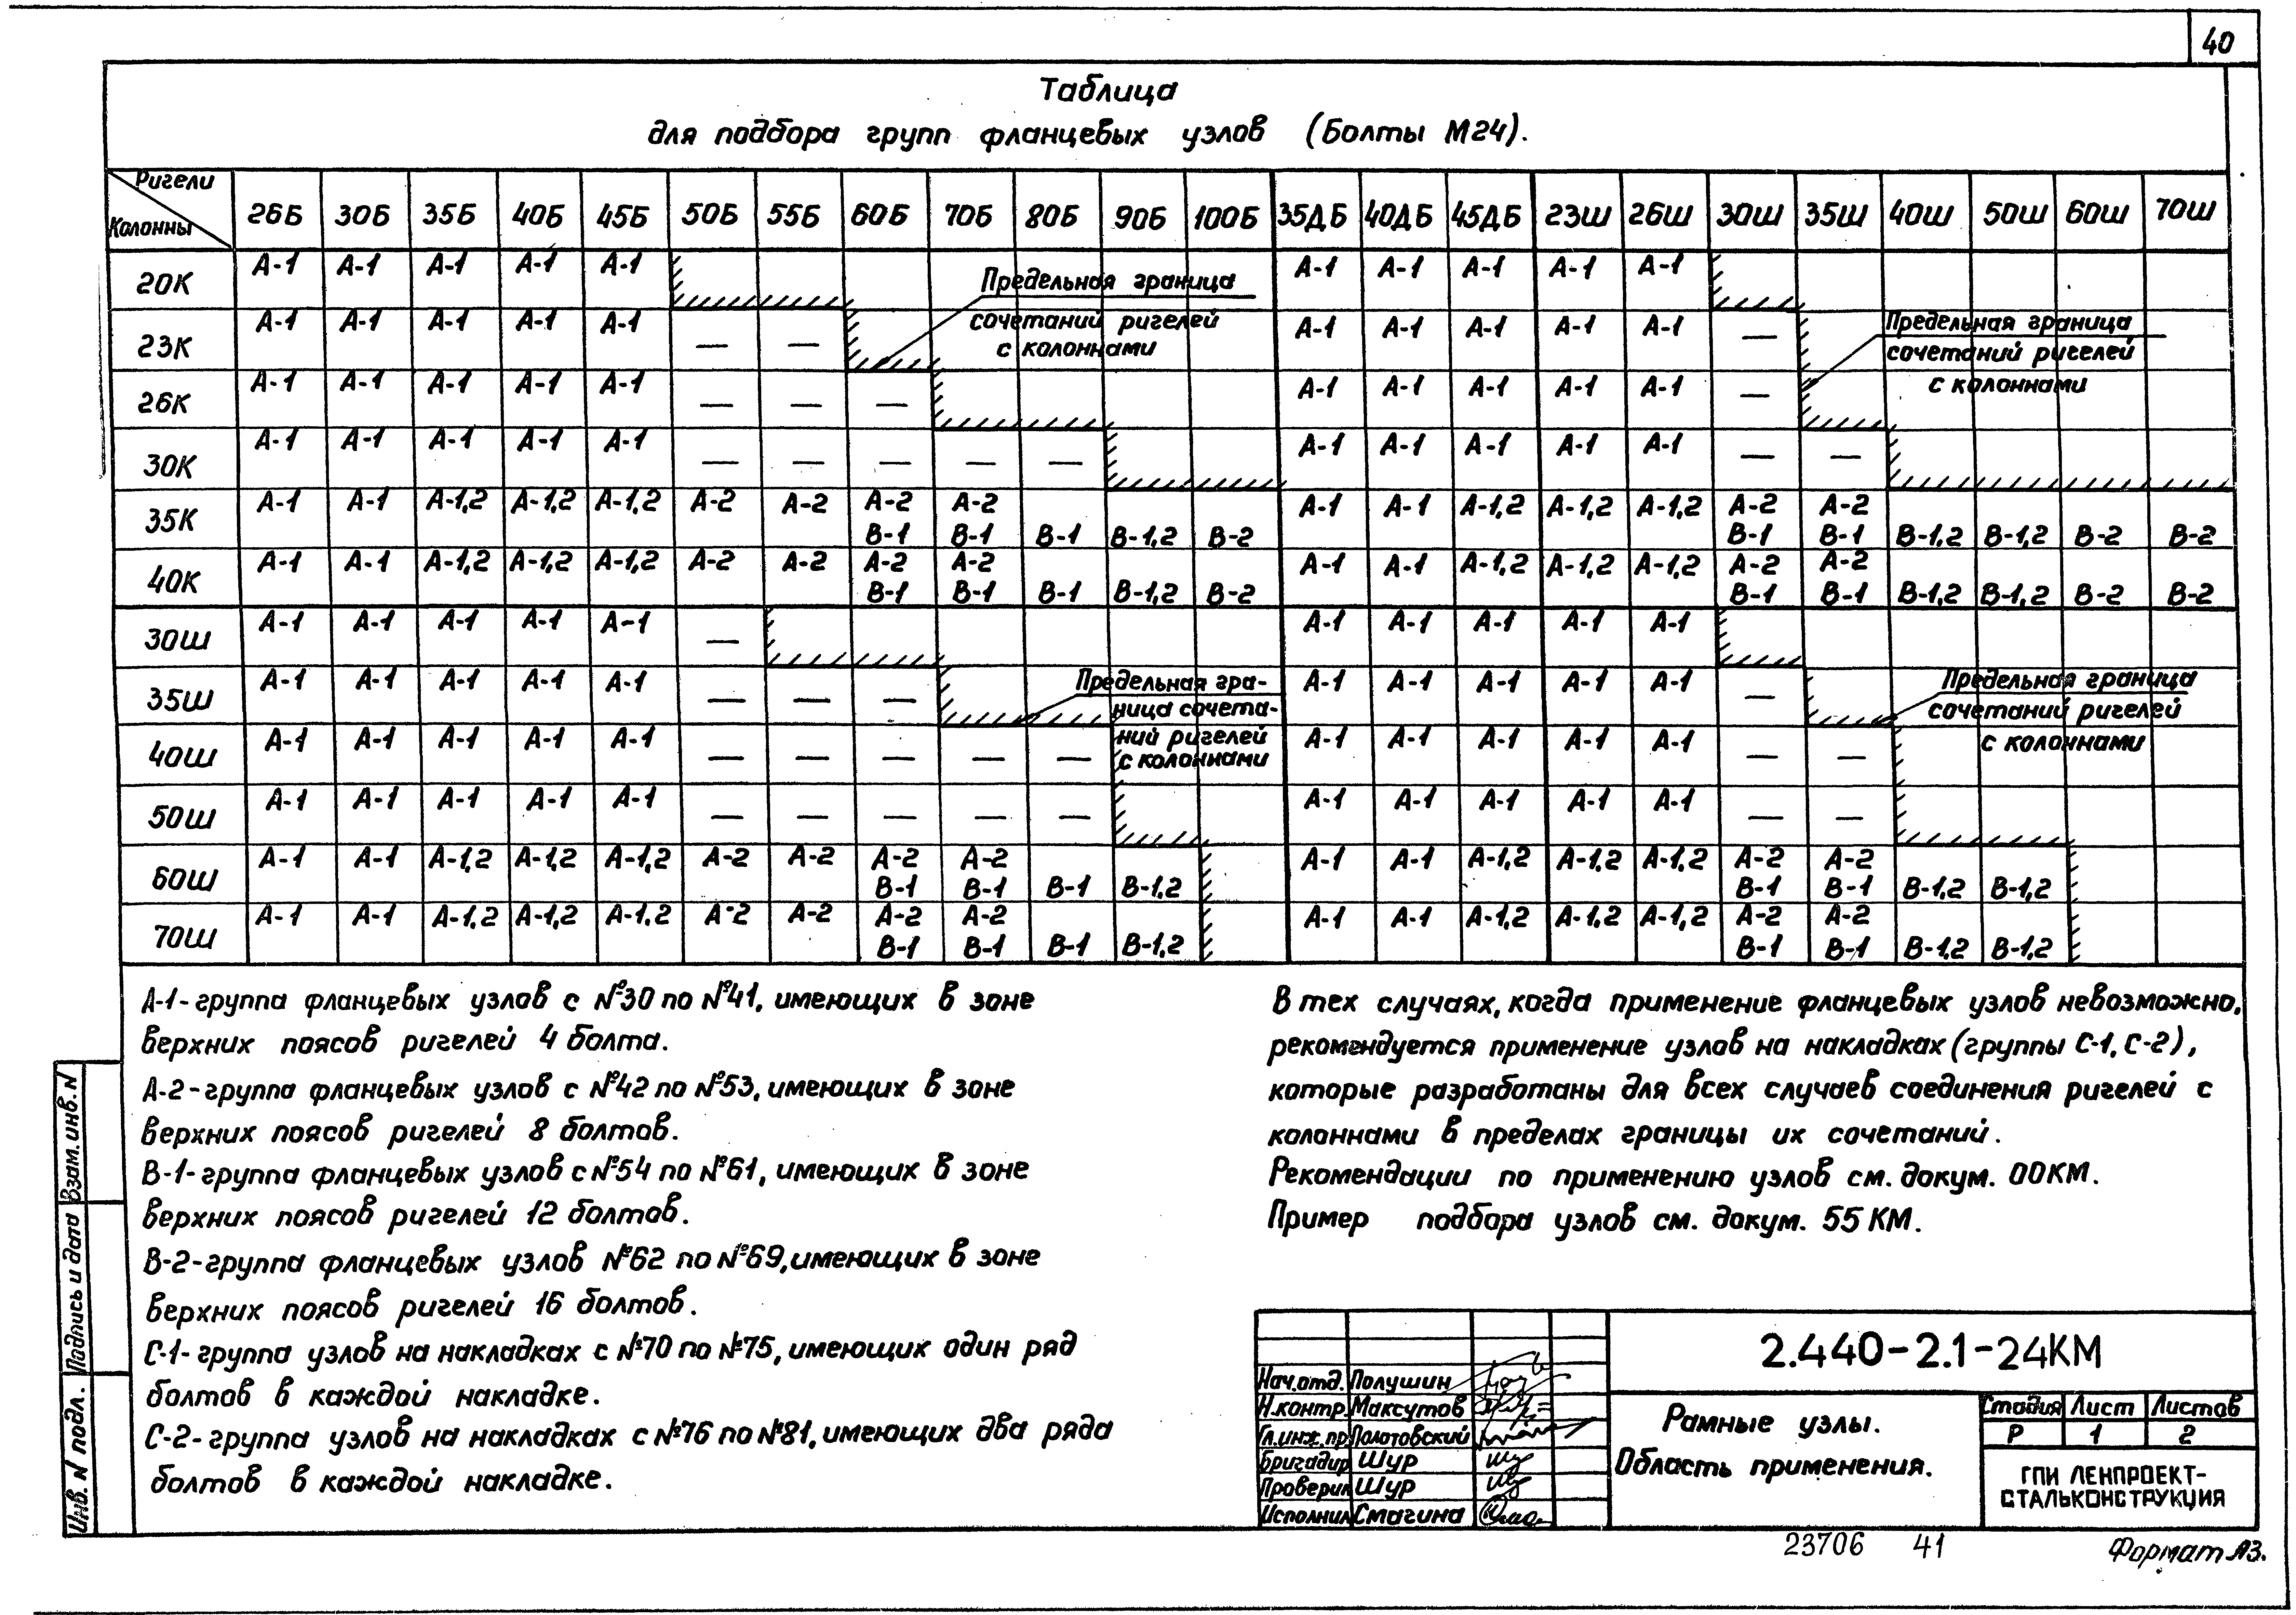 40
Таблица
для подбора групп фланцевых узлов (Болты М24).
Ригели
Колонны
26Б 30Б 35Б 40Б 45Б 50Б 55Б 60Б 70Б 80Б 90Б 100Б 35ДБ 40ДБ 45ДБ 23Ш 26Ш 30Ш 35Ш 40Ш 50Ш 60Ш 70Ш
20К А-1 А-1 А-1 А-1 А-1 А-1 А-1 А-1 А-1 А-1
Предельная граница
сочетаний ригелей
с колоннами
23К А-1 А-1 А-1 А-1 А-1 — — А-1 А-1 А-1 А-1 А-1 —
Предельная граница
сочетаний ригелей
с колоннами
26К А-1 А-1 А-1 А-1 А-1 — — — А-1 А-1 А-1 А-1 А-1 —
30К А-1 А-1 А-1 А-1 А-1 — — — — — А-1 А-1 А-1 А-1 А-1 — —
35К А-1 А-1 А-1,2 А-1,2 А-1,2 А-2 А-2 А-2 А-2 А-1 А-1 А-1,2 А-1,2 А-1,2 А-2 А-2
В-1 В-1 В-1 В-1,2 В-2 В-1 В-1 В-1,2 В-1,2 В-2 В-2
40К А-1 А-1 А-1,2 А-1,2 А-1,2 А-2 А-2 А-2 А-2 А-1 А-1 А-1,2 А-1,2 А-1,2 А-2 А-2
В-1 В-1 В-1 В-1,2 В-2 В-1 В-1 В-1,2 В-1,2 В-2 В-2
30Ш А-1 А-1 А-1 А-1 А-1 — А-1 А-1 А-1 А-1 А-1
35Ш А-1 А-1 А-1 А-1 А-1 — — — А-1 А-1 А-1 А-1 А-1 —
Предельная гра-
ница сочета-
ний ригелей
с колоннами
Предельная граница
сочетаний ригелей
с колоннами
40Ш А-1 А-1 А-1 А-1 А-1 — — — — — А-1 А-1 А-1 А-1 А-1 — —
50Ш А-1 А-1 А-1 А-1 А-1 — — — — — А-1 А-1 А-1 А-1 А-1 — —
60Ш А-1 А-1 А-1,2 А-1,2 А-1,2 А-2 А-2 А-2 А-2 А-1 А-1 А-1,2 А-1,2 А-1,2 А-2 А-2
В-1 В-1 В-1 В-1,2 В-1 В-1 В-1,2 В-1,2
70Ш А-1 А-1 А-1,2 А-1,2 А-1,2 А-2 А-2 А-2 А-2 А-1 А-1 А-1,2 А-1,2 А-1,2 А-2 А-2
В-1 В-1 В-1 В-1,2 В-1 В-1 В-1,2 В-1,2
А-1-группа фланцевых узлов с №30 по №41, имеющих в зоне
верхних поясов ригелей 4 болта.
А-2-группа фланцевых узлов с №42 по №53, имеющих в зоне
верхних поясов ригелей 8 болтов.
В-1-группа фланцевых узлов с №54 по №61, имеющих в зоне
верхних поясов ригелей 12 болтов.
В-2-группа фланцевых узлов №62 по №69, имеющих в зоне
верхних поясов ригелей 16 болтов.
С-1-группа узлов на накладках с №70 по №75, имеющих один ряд
болтов в каждой накладке.
С-2-группа узлов на накладках с №76 по №81, имеющих два ряда
болтов в каждой накладке.
В тех случаях, когда применение фланцевых узлов невозможно,
рекомендуется применение узлов на накладках (группы С-1, С-2),
которые разработаны для всех случаев соединения ригелей с
колоннами в пределах границы их сочетаний.
Рекомендации по применению узлов см. докум. 00КМ.
Пример подбора узлов см. докум. 55 КМ.
Взам. инв. N
Подпись и дата
Инв. N подл.
Нач.отд. Полушин
Н.контр. Максутов
Гл.инж.пр Полотовский
Бригадир Шур
Проверил Шур
Исполнил Смагина
2.440-2.1-24КМ
Рамные узлы.
Область применения.
Стадия Лист Листов
Р 1 2
ГПИ ЛЕНПРОЕКТ-
СТАЛЬКОНСТРУКЦИЯ
23706 41
Формат А3.